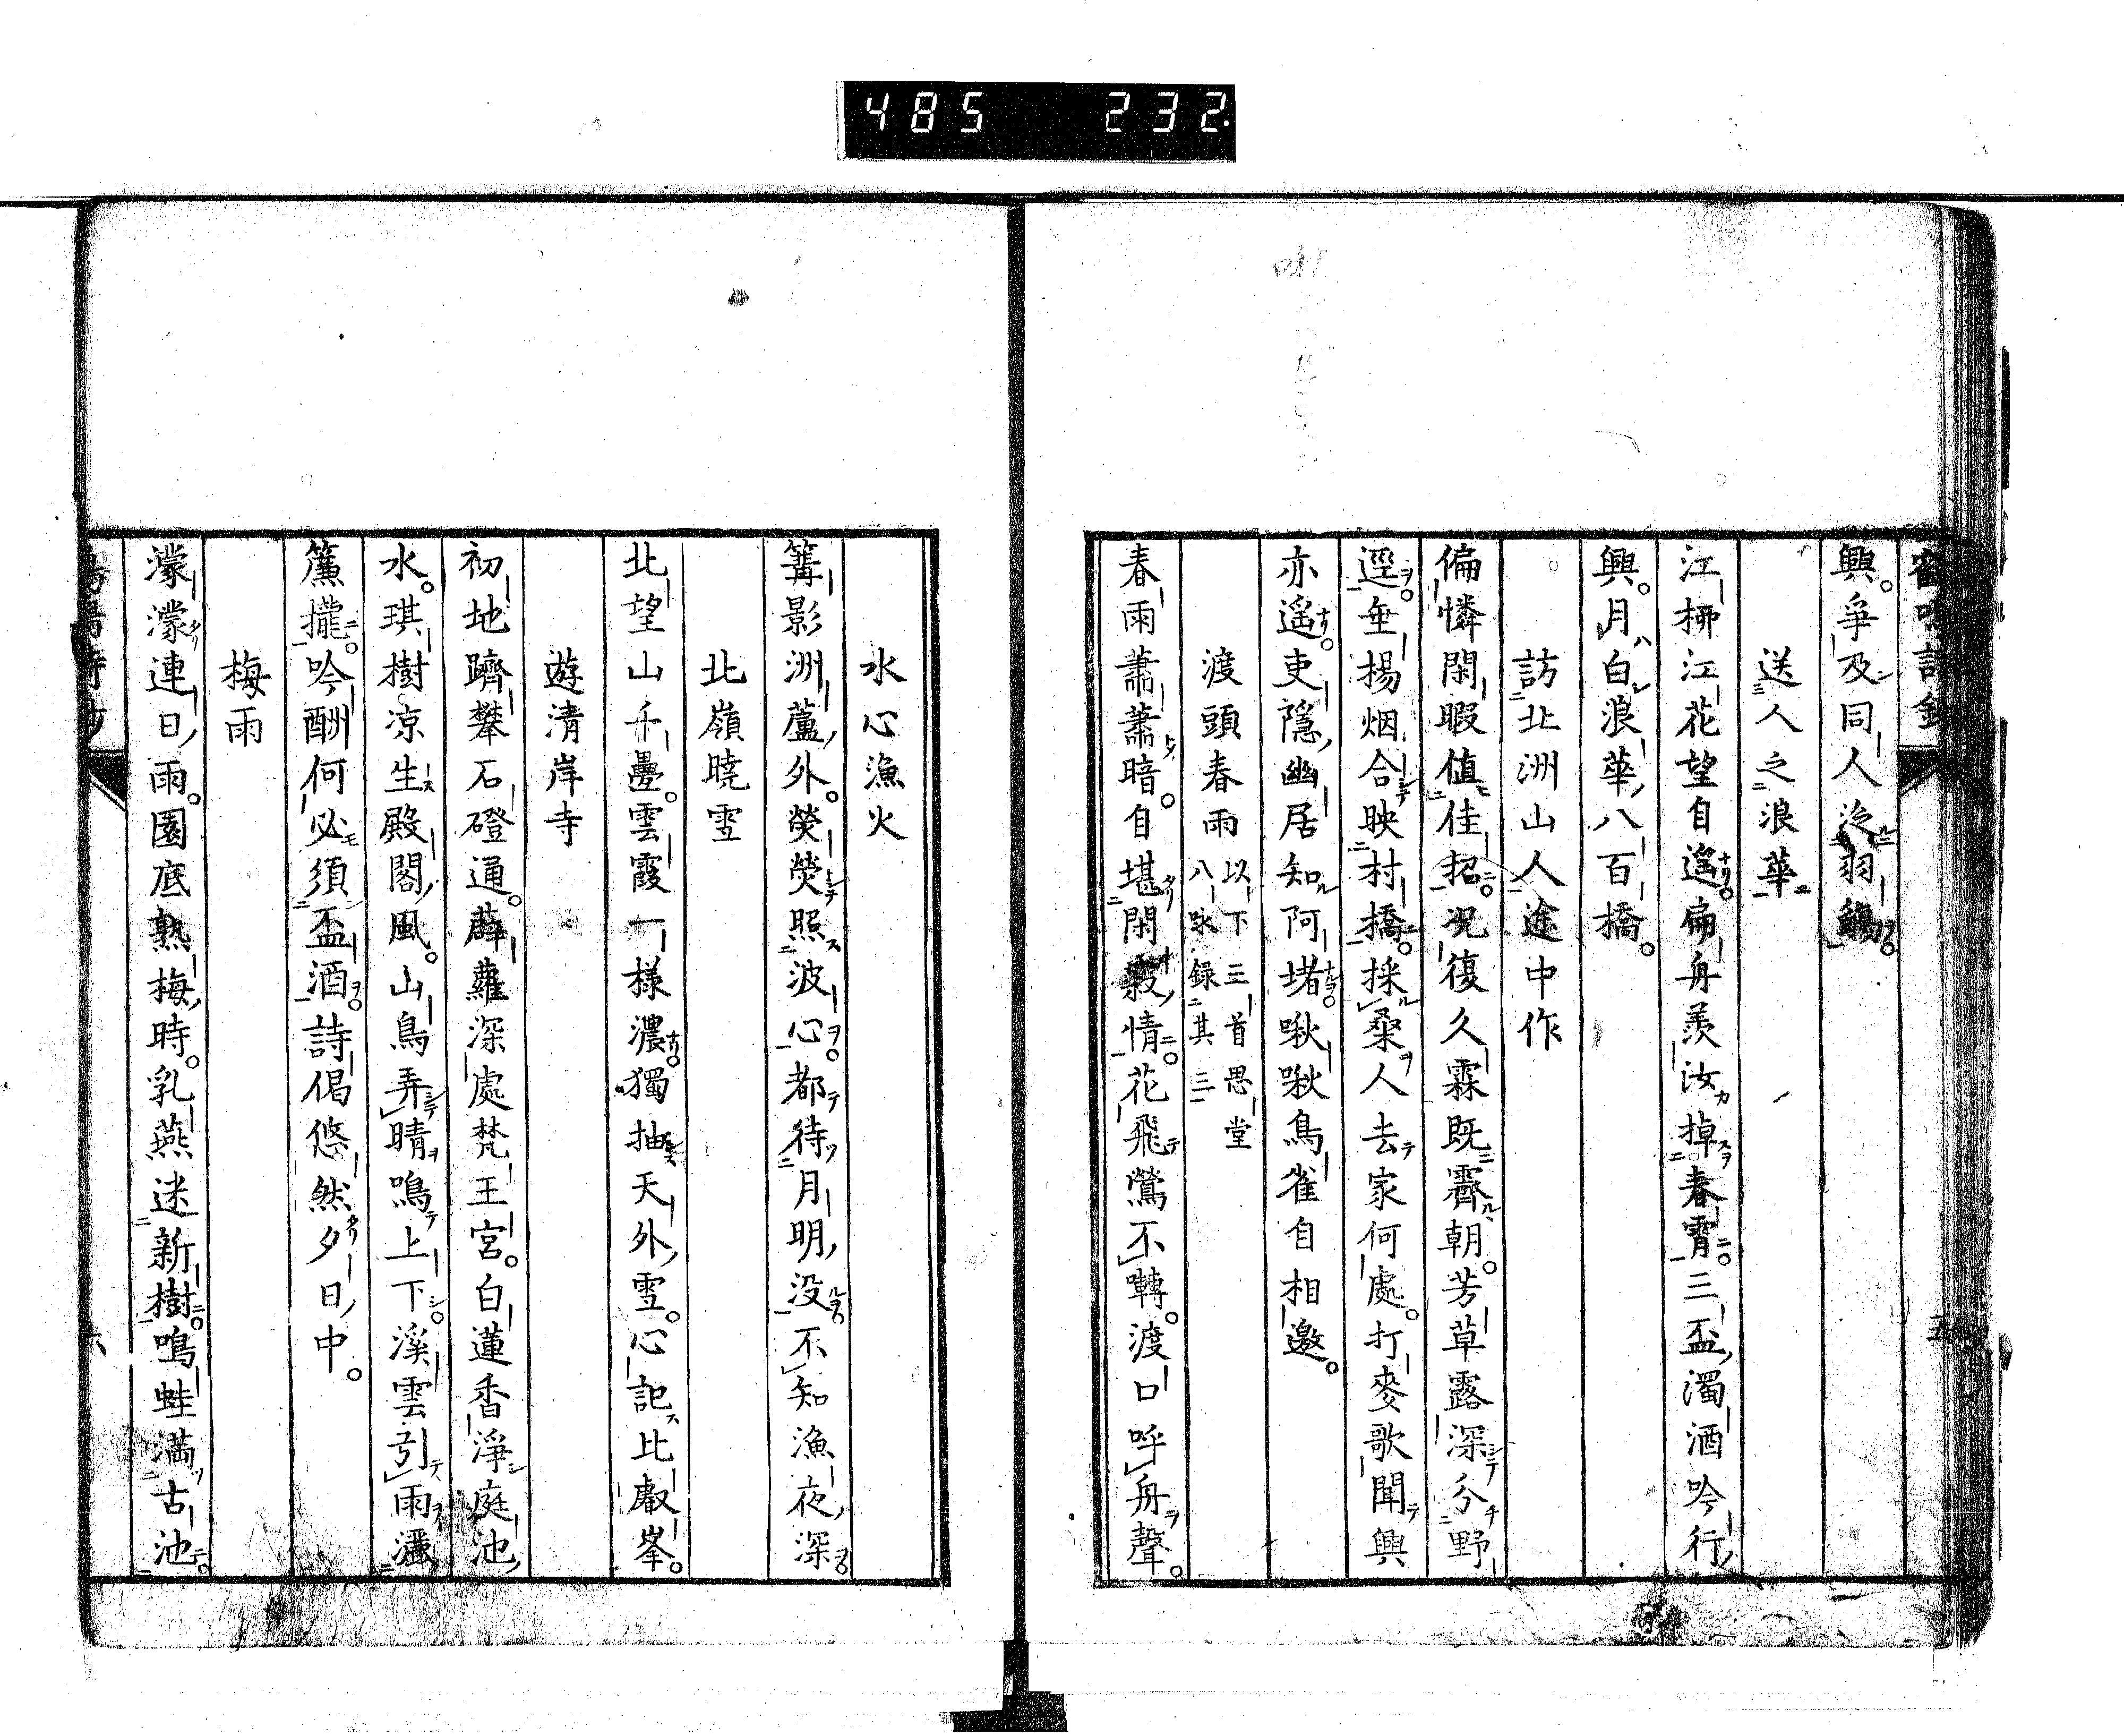 485 232
興。爭及同人泛羽觴。
送人之浪華
江柳江花望自遙。扁舟羨汝掉春霄。三盃濁酒吟行
興。月白浪華八百橋。
訪北洲山人途中作
偏憐閑暇値佳招。况復久霖既霽朝。芳草露深分野
逕。垂楊烟合映村橋。採桑人去家何處。打麥歌聞興
亦遙。吏隱幽居知阿堵。啾啾鳥雀自相邀。
渡頭春雨 以下三首思堂
八咏錄其三
春雨蕭蕭暗。自堪閑寂情。花飛鶯不囀。渡口呼舟聲。
水心漁火
篝影洲蘆外。熒熒照波心。都待月明沒。不知漁夜深。
北嶺曉雪
北望山千疊。雲霞一樣濃。獨抽天外雪。心記比叡峯。
遊清岸寺
初地躋攀石磴通。薜蘿深處梵王宮。白蓮香淨庭池
水。琪樹凉生殿閣風。山鳥弄晴鳴上下。溪雲引雨灑
簾櫳。吟酬何必須盃酒。詩偈悠然夕日中。
梅雨
濛濛連日雨。園底熟梅時。乳燕迷新樹。鳴蛙滿古池。
六